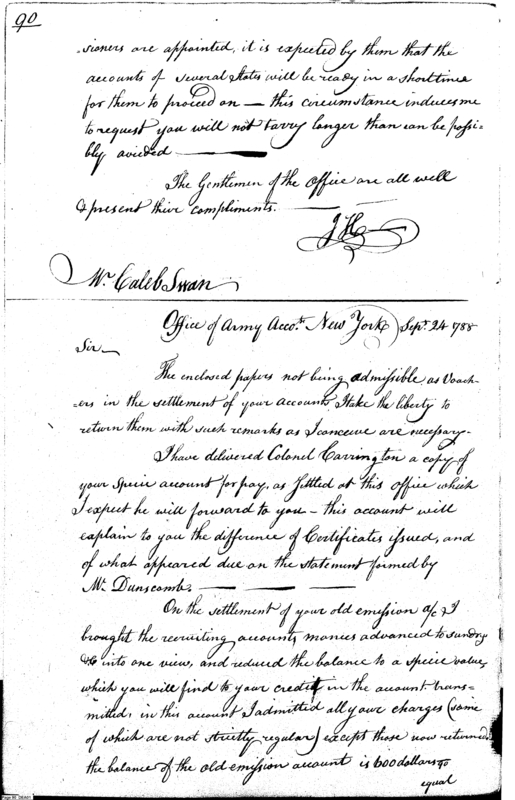 90
sioners are appointed, it is expected by them that the
accounts of several States will be ready in a short time
for them to proceed on — this circumstance induces me
to request you will not tarry longer than can be possi-
bly avoided —
The Gentlemen of the Office are all well
& present their compliments. —
JH
Mr. Caleb Swan
Office of Army Accots. New York Sept. 24 1788
Sir —
The enclosed papers not being admissible as Vouch-
ers in the settlement of your accounts I take the liberty to
return them with such remarks as I conceive are necessary.
I have delivered Colonel Carrington a copy of
your specie account for pay, as settled at this office which
I expect he will forward to you — this account will
explain to you the difference of Certificates issued, and
of what appeared due on the statement formed by
Mr. Dunscomb. — — —
On the settlement of your old emission a/c I
brought the recruiting accounts, monies advanced to sundry
&c into one view, and reduced the balance to a specie value,
which you will find to your credit in the account trans-
mitted, in this account I admitted all your charges (some
of which are not strictly regular) except those now returned
the balance of the old emission account is 600 dollars
equal